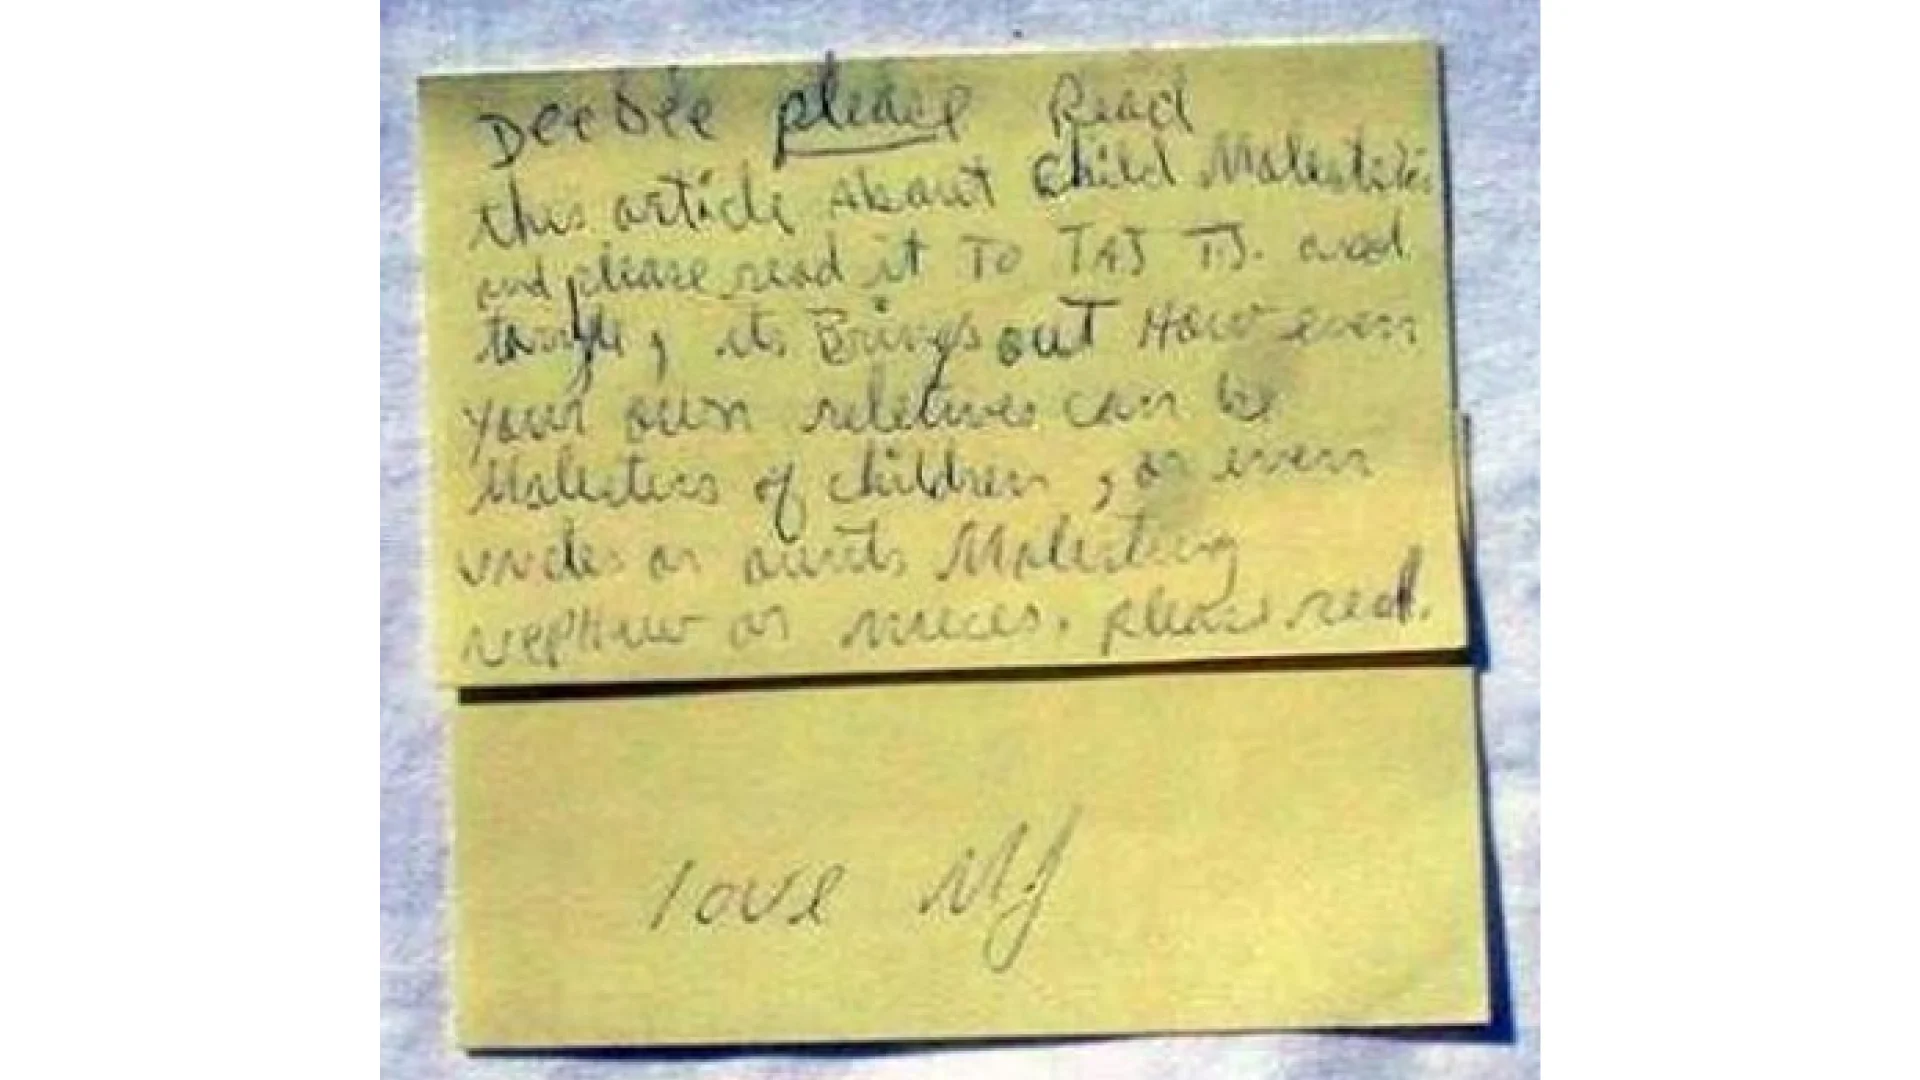 DeeDee please Read
this article About Child Molestation
and please read it TO TAJ T.J. and
its Brings out How even
your own reletives can be
Molesters of children, or even
uncles or aunts Molesting
nephew or nieces. please read.
love MJ